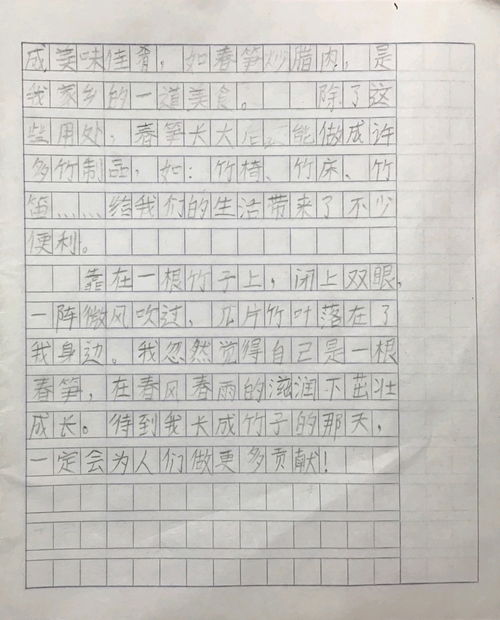 成美味佳肴，如春笋炒腊肉，是
我家乡的一道美食。 除了这
些用处，春笋长大后 能做成许
多竹制品，如：竹椅、竹床、竹
笛……给我们的生活带来了不少
便利。
靠在一根竹子上，闭上双眼，
一阵微风吹过，几片竹叶落在了
我身边。我忽然觉得自己是一根
春笋，在春风春雨的滋润下茁壮
成长。待到我长成竹子的那天，
一定会为人们做更多贡献！